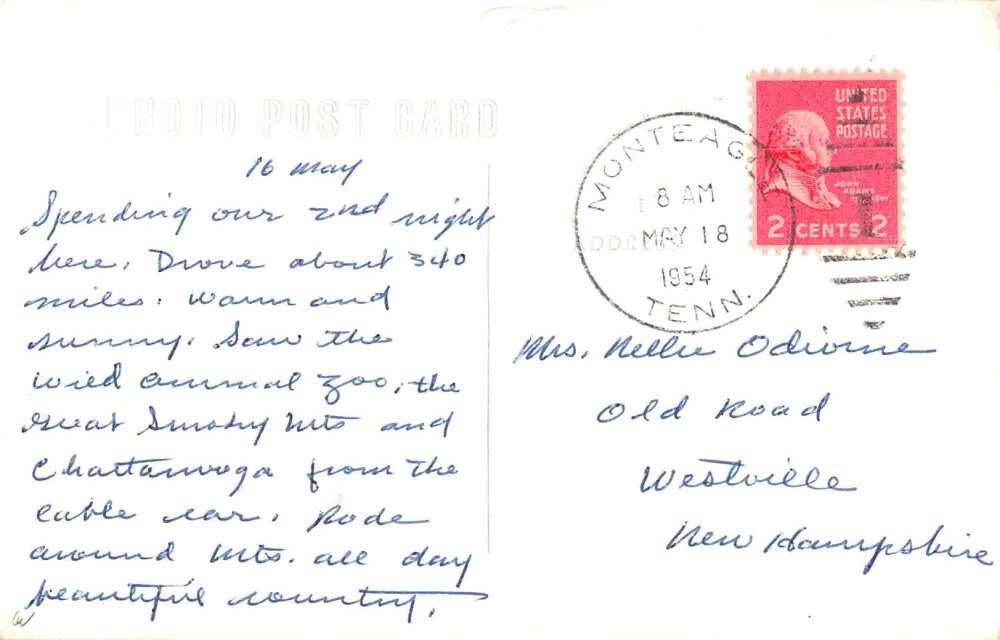 PHOTO POST CARD
16 May
Spending our 2nd night
here. Drove about 340
miles. Warm and
sunny. Saw the
wild animal zoo, the
Great Smoky Mts and
Chattanooga from the
cable car. Rode
around Mts. all day
beautiful country.
UNITED
STATES
POSTAGE
JOHN
ADAMS
2 CENTS 2
MONTEAGLE
8 AM
MAY 18
1954
TENN.
Mrs. Nellie Odiorne
Old Road
Westville
New Hampshire